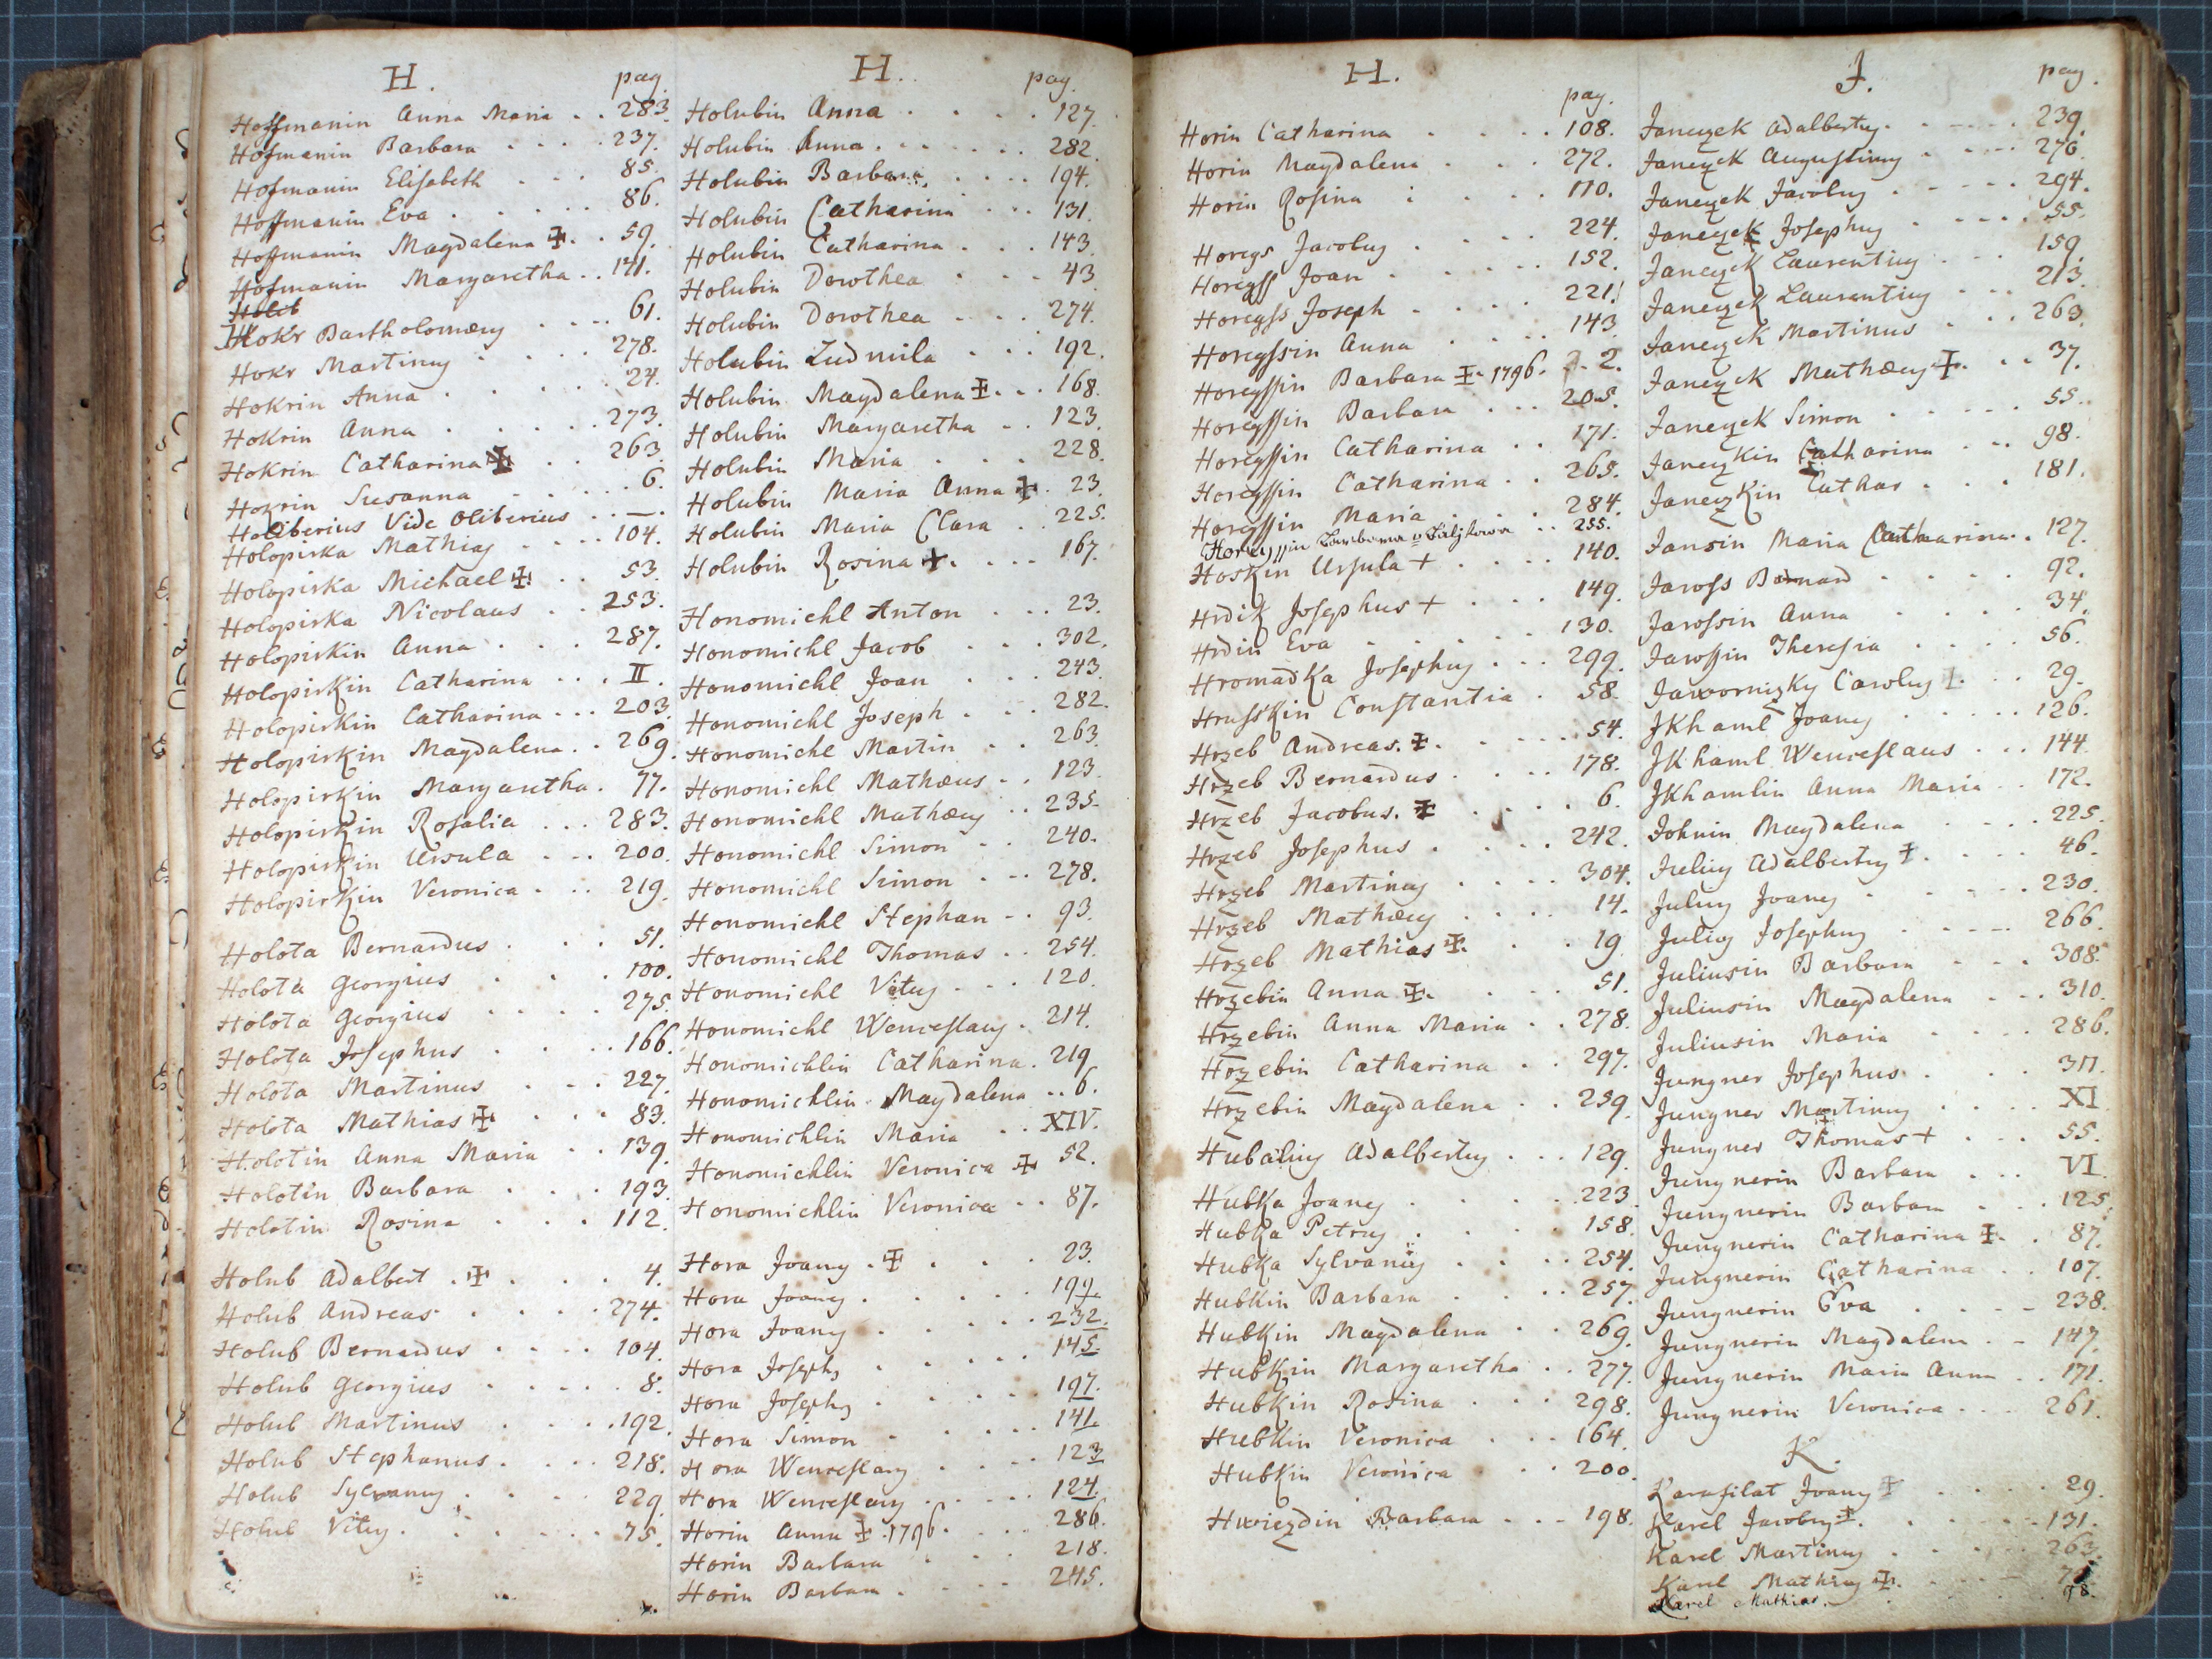 H. pag.
Hoffmanin Anna Maria . . 283.
Hofmanin Barbara . . . . 237.
Hofmanin Elisabeth . . . 85.
Hoffmanin Eva . . . . . 86.
Hoffmanin Magdalena ✠ . . 59.
Hofmanin Margaretha . . 141.
Holib
Hokr Bartholomæus . . . . 61.
Hokr Martinus . . . . 278.
Hokrin Anna . . . . . 24.
Hokrin Anna . . . . . 273.
Hokrin Catharina ✠ . . 263.
Hokrin Susanna . . . . 6.
Holiberius Vide Oliberius . . —.
Holopirka Mathias . . . . 104.
Holopirka Michael ✠ . . 53.
Holopirka Nicolaus . . 253.
Holopirkin Anna . . . 287.
Holopirkin Catharina . . . II.
Holopirkin Catharina . . . 203.
Holopirkin Magdalena . . 269.
Holopirkin Margaretha . 77.
Holopirkin Rosalia . . . 283.
Holopirkin Ursula . . . 200.
Holopirkin Veronica . . . 219.
Holota Bernardus . . . 51.
Holota Georgius . . . 100.
Holota Georgius . . . . 275.
Holota Josephus . . . . 166.
Holota Martinus . . . 227.
Holota Mathias ✠ . . . 83.
Holotin Anna Maria . . 139.
Holotin Barbara . . . 193.
Holotin Rosina . . . 112.
Holub Adalbert . ✠ . . . 4.
Holub Andreas . . . . . 274.
Holub Bernardus . . . . 104.
Holub Georgius . . . . . 8.
Holub Martinus . . . . 192.
Holub Stephanus . . . . 218.
Holub Sylvanus . . . . 229.
Holub Vitus . . . . . . 75.
H. pag.
Holubin Anna . . . . . 127.
Holubin Anna . . . . . . 282.
Holubin Barbara . . . . 194.
Holubin Catharina . . . 131.
Holubin Catharina . . . 143.
Holubin Dorothea . . . . 43.
Holubin Dorothea . . . . 274.
Holubin Ludmila . . . 192.
Holubin Magdalena ✠ . . . 168.
Holubin Margaretha . . 123.
Holubin Maria . . . . 228.
Holubin Maria Anna ✠ . 23.
Holubin Maria Clara . 225.
Holubin Rosina ✠ . . . . 167.
Honomichl Anton . . . 23.
Honomichl Jacob . . . 302.
Honomichl Joan . . . 243.
Honomichl Joseph . . . 282.
Honomichl Martin . . 263.
Honomichl Mathæus . . 123.
Honomichl Mathæus . . 235.
Honomichl Simon . . 240.
Honomichl Simon . . . 278.
Honomichl Stephan . . 93.
Honomichl Thomas . . 254.
Honomichl Vitus . . . 120.
Honomichl Wenceslaus . 214.
Honomichlin Catharina . 219
Honomichlin Magdalena . . 6.
Honomichlin Maria . . XIV.
Honomichlin Veronica ✠ 52.
Honomichlin Veronica . . 87.
Hora Joanes . ✠ . . . 23.
Hora Joanes . . . . . 199.
Hora Joanes . . . . . 232.
Hora Joseph . . . . . 145.
Hora Joseph . . . . . 197.
Hora Simon . . . . . 141.
Hora Wenceslaus . . . . 123
Hora Wenceslaus . . . . . 124.
Horin Anna ✠ 1796. . . 286.
Horin Barbara . . . . 218.
Horin Barbara . . . . 245.
H. pag.
Horin Catharina . . . . . 108.
Horin Magdalena . . . 272.
Horin Rosina . . . . . 110.
Horegs Jacobus . . . . 224.
Horegss Joan . . . . . 152.
Horegss Joseph . . . . 221.
Horegssin Anna . . . . 143.
Horegssin Barbara ✠ 1796. . . 2.
Horegssin Barbara . . . 205.
Horegssin Catharina . . 171.
Horegssin Catharina . . 265.
Horegssin Maria . . . . 284.
Horegssin Barbara . . 255.
Hoskin Ursula + . . . . 140.
Hrdik Josephus + . . . 149.
Hrdin Eva . . . . . . 130.
Hromadka Josephus . . . 299.
Hrusskin Constantia . 58.
Hrzeb Andreas. ✠ . . . . . 54.
Hrzeb Bernardus . . . . 178.
Hrzeb Jacobus. ✠ . . . . 6.
Hrzeb Josephus . . . . 242.
Hrzeb Martinus . . . . 304.
Hrzeb Mathæus . . . . 14.
Hrzeb Mathias ✠ . . . 19.
Hrzebin Anna ✠ . . . . 51.
Hrzebin Anna Maria . . 278.
Hrzebin Catharina . . 297.
Hrzebin Magdalena . . 259.
Hubalius Adalbertus . . . 129.
Hubka Joanes . . . . . 223.
Hubka Petrus . . . . 158.
Hubka Sylvanus . . . . 254.
Hubkin Barbara . . . . 257.
Hubkin Magdalena . . 269.
Hubkin Margaretha . . 277.
Hubkin Rosina . . . 298.
Hubkin Veronica . . . 164.
Hubkin Veronica . . 200.
Hwiezdin Barbara . . . 198.
J. pag.
Janeczek Adalbertus . . . . . 239.
Janeczek Augustinus . . . . 276.
Janeczek Jacobus . . . . . 294.
Janeczek Josephus . . . . 55.
Janeczek Laurentius . . . 159.
Janeczek Laurentius . . . 213.
Janeczek Martinus . . . 263.
Janeczek Mathæus ✠ . . . 37.
Janeczek Simon . . . . . 55.
Janeczkin Catharina . . . 98.
Janeczkin Cathar . . . . 181.
Jansin Maria Catharina . . 127.
Jaross Bernard . . . . 92.
Jarossin Anna . . . . 34.
Jarossin Theresia . . . . 56.
Jawornizky Carolus . . . 29.
Jkhaml Joanes . . . . . 126.
Jkhaml Wenceslaus . . . 144.
Jkhamlin Anna Maria . . 172.
Johnin Magdalena . . . . 225.
Julius Adalbertus ✠ . . . . 46.
Julius Joanes . . . . . . 230.
Julius Josephus . . . . . 266.
Juliusin Barbara . . . . 308.
Juliusin Magdalena . . . 310.
Juliusin Maria . . . . 286.
Jungner Josephus . . . . 311.
Jungner Martinus . . . . XI
Jungner Thomas + . . . 55.
Jungnerin Barbara . . . VI.
Jungnerin Barbara . . . 125.
Jungnerin Catharina ✠ . . 87.
Jungnerin Catharina . . 107.
Jungnerin Eva . . . . 238.
Jungnerin Magdalena . . 147.
Jungnerin Maria Anna . . 171.
Jungnerin Veronica . . . 261.
K.
Karafilat Joanes ✠ . . . . . 29.
Karel Jacobus ✠ . . . . . 131.
Karel Martinus . . . . . 263.
Karel Mathias ✠ . . . .
Karel Mathias . . . . . 98.